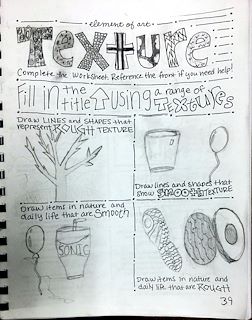 element of art
Texture
Complete the worksheet. Reference the front if you need help!
Fill in the
title ↑ using a range of
TEXTURES
Draw LINES and SHAPES that
represent ROUGH TEXTURE
Draw lines and shapes that
show SMOOTH TEXTURE
Draw items in nature and
daily life that are Smooth
SONIC
Draw items in nature and
daily life that are ROUGH
39